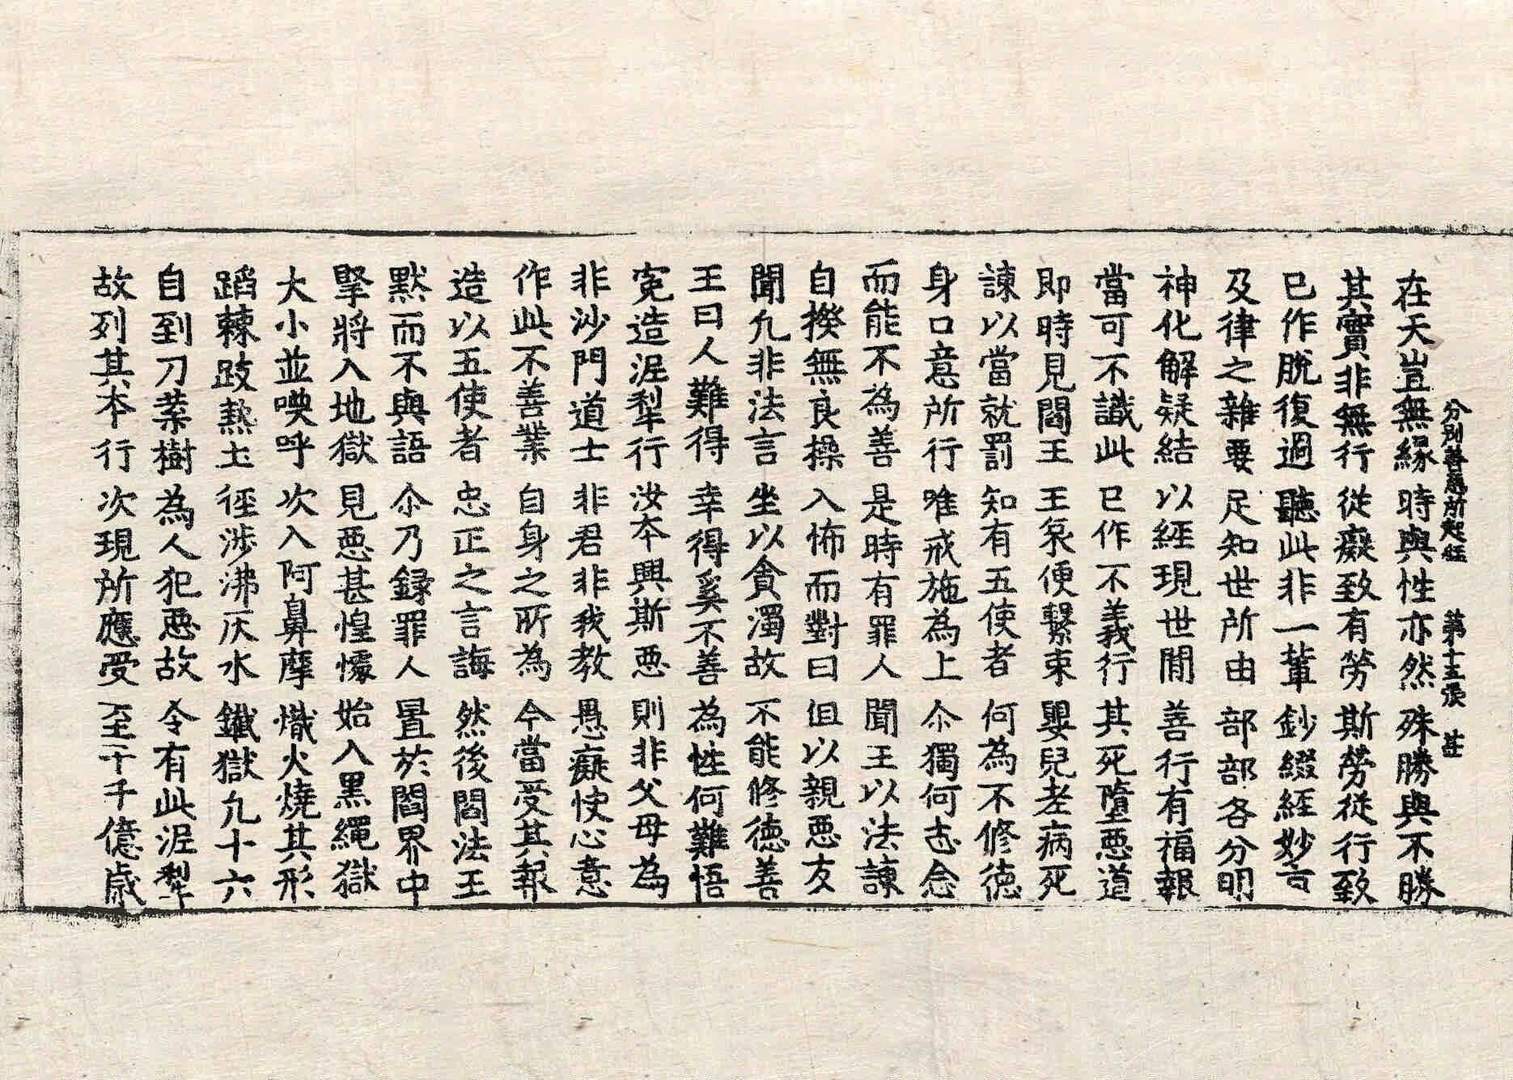 分別善惡所起經　第十五張　茔
在天豈無緣　時與性亦然　殊勝與不勝
其實非無行　從癡致有勞　斯勞從行致
已作脫復過　聽此非一輩　鈔綴經妙言
及律之雜要　足知世所由　部部各分明
神化解疑結　以經現世間　善行有福報
當可不識此　已作不義行　其死墮惡道
即時見閻王　王哀便繫束　嬰兒老病死
諫以當就罰　知有五使者　何為不修德
身口意所行　唯戒施為上　尒獨何志念
而能不為善　是時有罪人　聞王以法諫
自揆無良操　入怖而對曰　但以親惡友
聞九非法言　坐以貪濁故　不能修德善
王曰人難得　幸得奚不善　為性何難悟
寃造泥犁行　汝本興斯惡　則非父母為
非沙門道士　非君非我教　愚癡快心意
作此不善業　自身之所為　今當受其報
造以五使者　忠正之言誨　然後閻法王
默而不與語　尒乃錄罪人　置於閻界中
擎將入地獄　見惡甚惶懅　始入黑繩獄
大小並喚呼　次入阿鼻摩　熾火燒其形
蹈棘跂熱土　徑涉沸灰水　鐵獄九十六
自到刀葉樹　為人犯惡故　令有此泥犁
故列其本行　次現所應受　至千千億歲